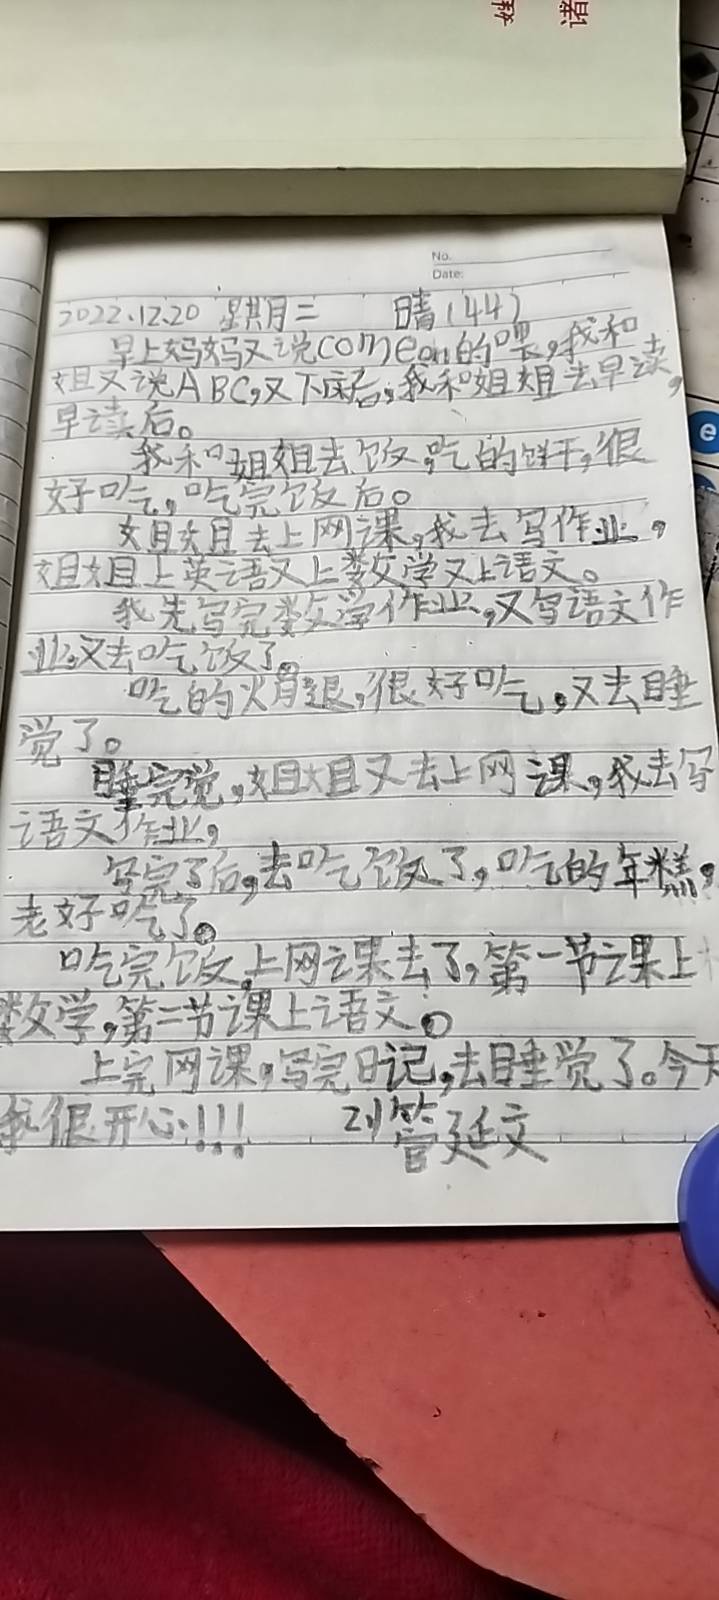 姓
诸
No.
Date:
2022.12.20 星期二 晴(44)
早上妈妈又说come on的嘿,我和
姐又说ABC,又下床后,我和姐姐去早读,
早读后。
我和姐姐去饭,吃的饼干,很
好吃,吃完饭后。
姐姐去上网课,我去写作业,
姐姐上英语又上数学又上语文。
我先写完数学作业,又写语文作
业,又去吃饭了。
吃的火肖退,很好吃,又去睡
觉了。
睡完觉,姐姐又去上网课,我去写
语文作业,
写完了后,去吃饭了,吃的年糕,
老好吃了。
吃完饭,上网课去了,第一节课上
数学,第二节课上语文。
上完网课,写完日记,去睡觉了。今天
我很开心!!!
管延文
e